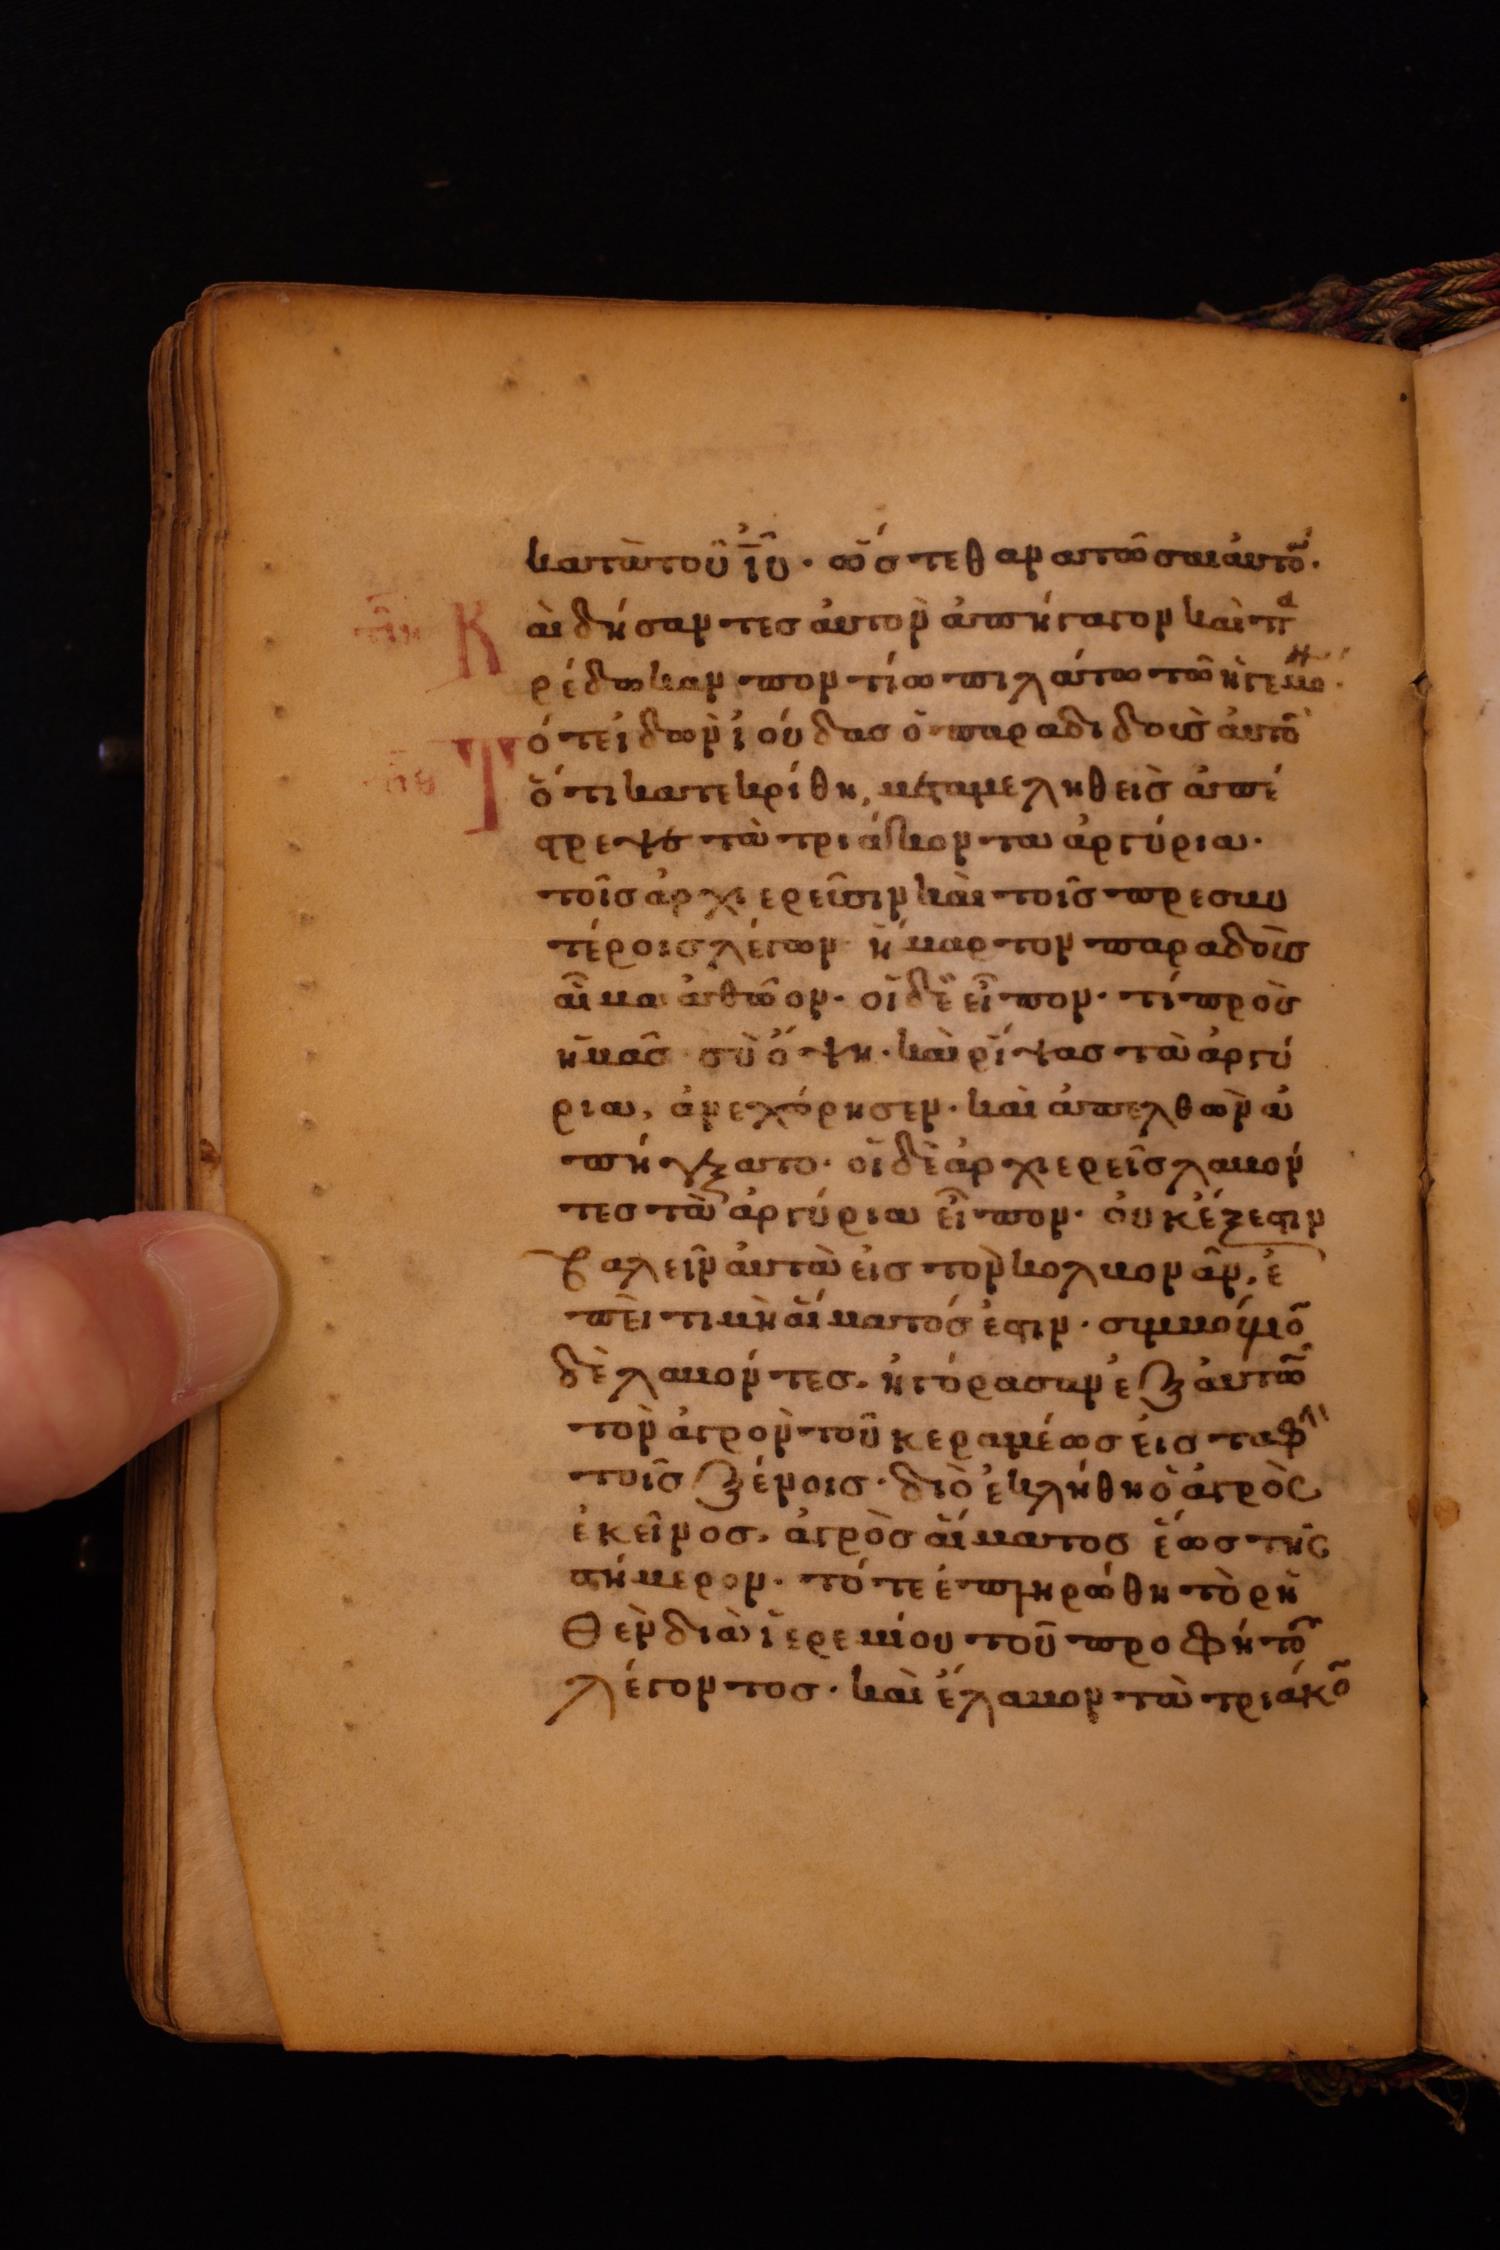 κατὰ τοῦ ἰῦ· ὥστε θανατῶσαι αὐτό̅·
Καὶ δήσαντες αὐτὸν ἀπήγαγον καὶ πα
ρέδωκαν ποντίω πιλάτω τῶ ἡγεμο·
Τότε ἰδὼν ἰούδας ὁ παραδιδοὺς αὐτὸ
ὅτι κατεκρίθη, μεταμεληθεὶς ἀπέ
στρεψε τὰ τριάκοντα ἀργύρια·
τοῖς ἀρχιερεῦσιν καὶ τοῖς πρεσβυ
τέροις λέγων ἥμαρτον παραδοὺς
αἷμα ἀθῶον· οἱ δὲ εἶπον· τί πρὸς
ἡμᾶς σὺ ὄψη· καὶ ῥίψας τὰ ἀργύ
ρια, ἀνεχώρησεν· καὶ ἀπελθὼν ἀ
πήγξατο· οἱ δὲ ἀρχιερεῖς λαβόν
τες τὰ ἀργύρια εἶπον· οὐκ ἔξεστιν
βαλεῖν αὐτὰ εἰς τὸν κολβονᾶν, ἐ
πεὶ τιμὴ αἵματός ἐστιν· συμβούλιο̅
δὲ λαβόντες, ἠγόρασαν ἐξ αὐτῶ̅
τὸν ἀγρὸν τοῦ κεραμέως εἰς ταφὴ
τοῖς ξένοις· διὸ ἐκλήθη ὁ ἀγρὸς
ἐκεῖνος, ἀγρὸς αἵματος ἕως τῆς
σήμερον· τότε ἐπληρώθη τὸ ῥη
θὲν διὰ ἱερεμίου τοῦ προφήτου
λέγοντος· καὶ ἔλαβον τὰ τριάκο̅